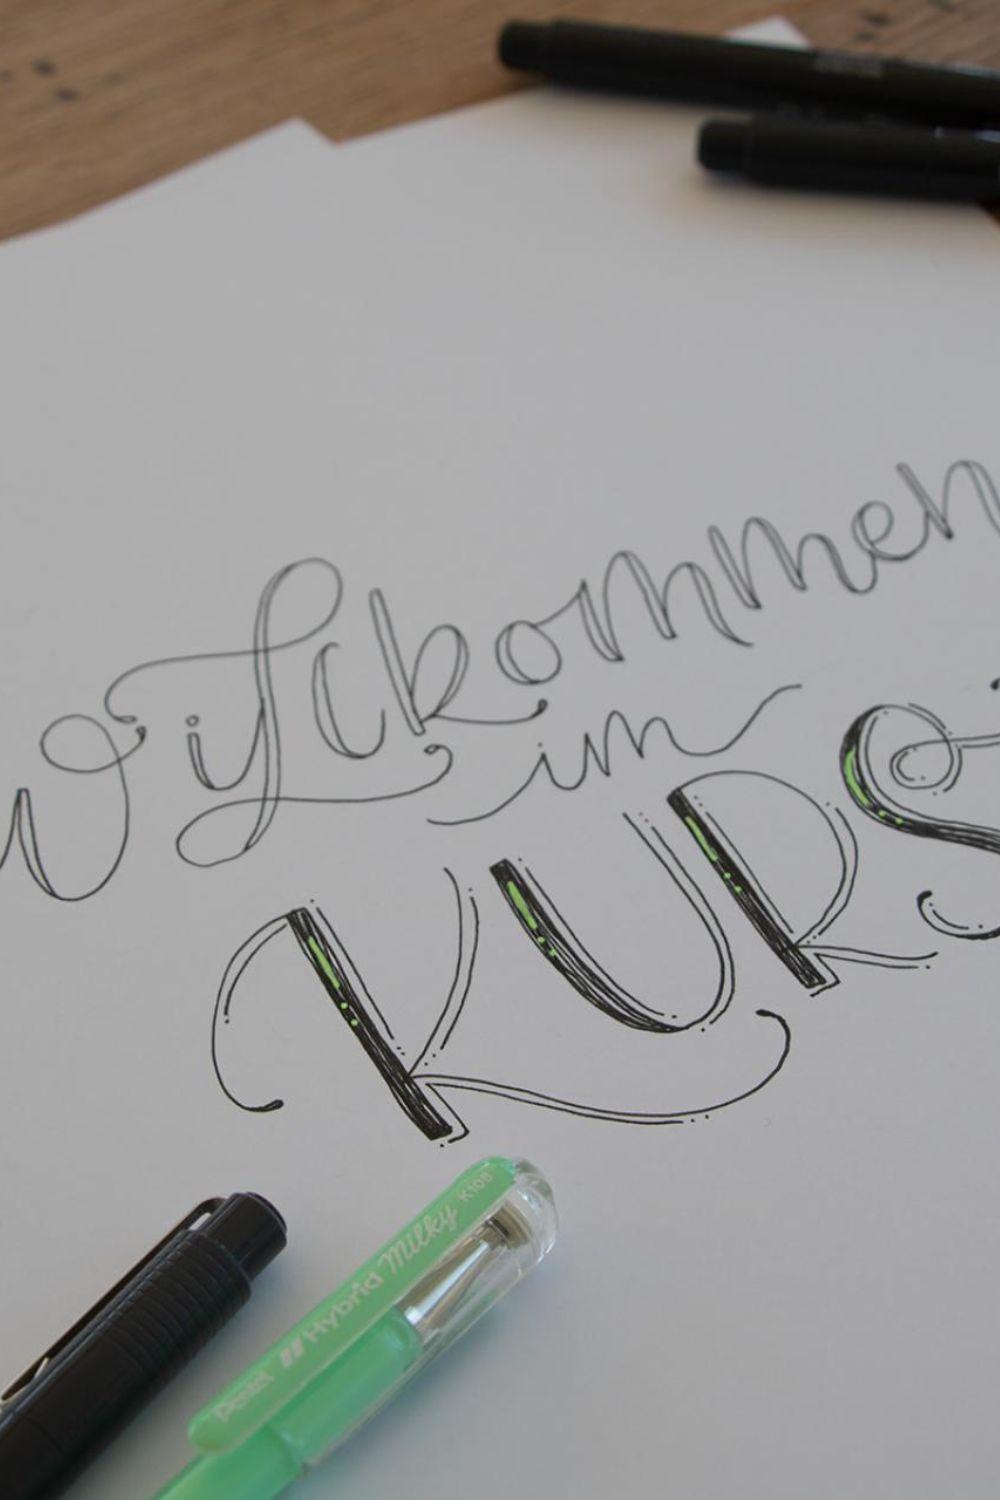 Willkommen
im
KURS
Pentel Hybrid Milky K108